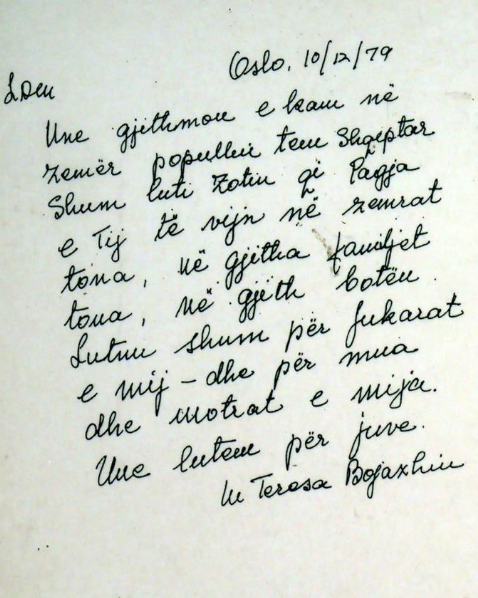 Oslo, 10/12/79
LDM
Une gjithmon e kam në
zemër popullin tem Shqiptar
Shum luti Zotin që Paqja
e Tij të vijn në zemrat
tona, në gjitha familjet
tona, në gjith botën.
Lutnu shum për fukarat
e mij – dhe për mua
dhe motrat e mija.
Une lutem për juve.
M Teresa Bojaxhiu